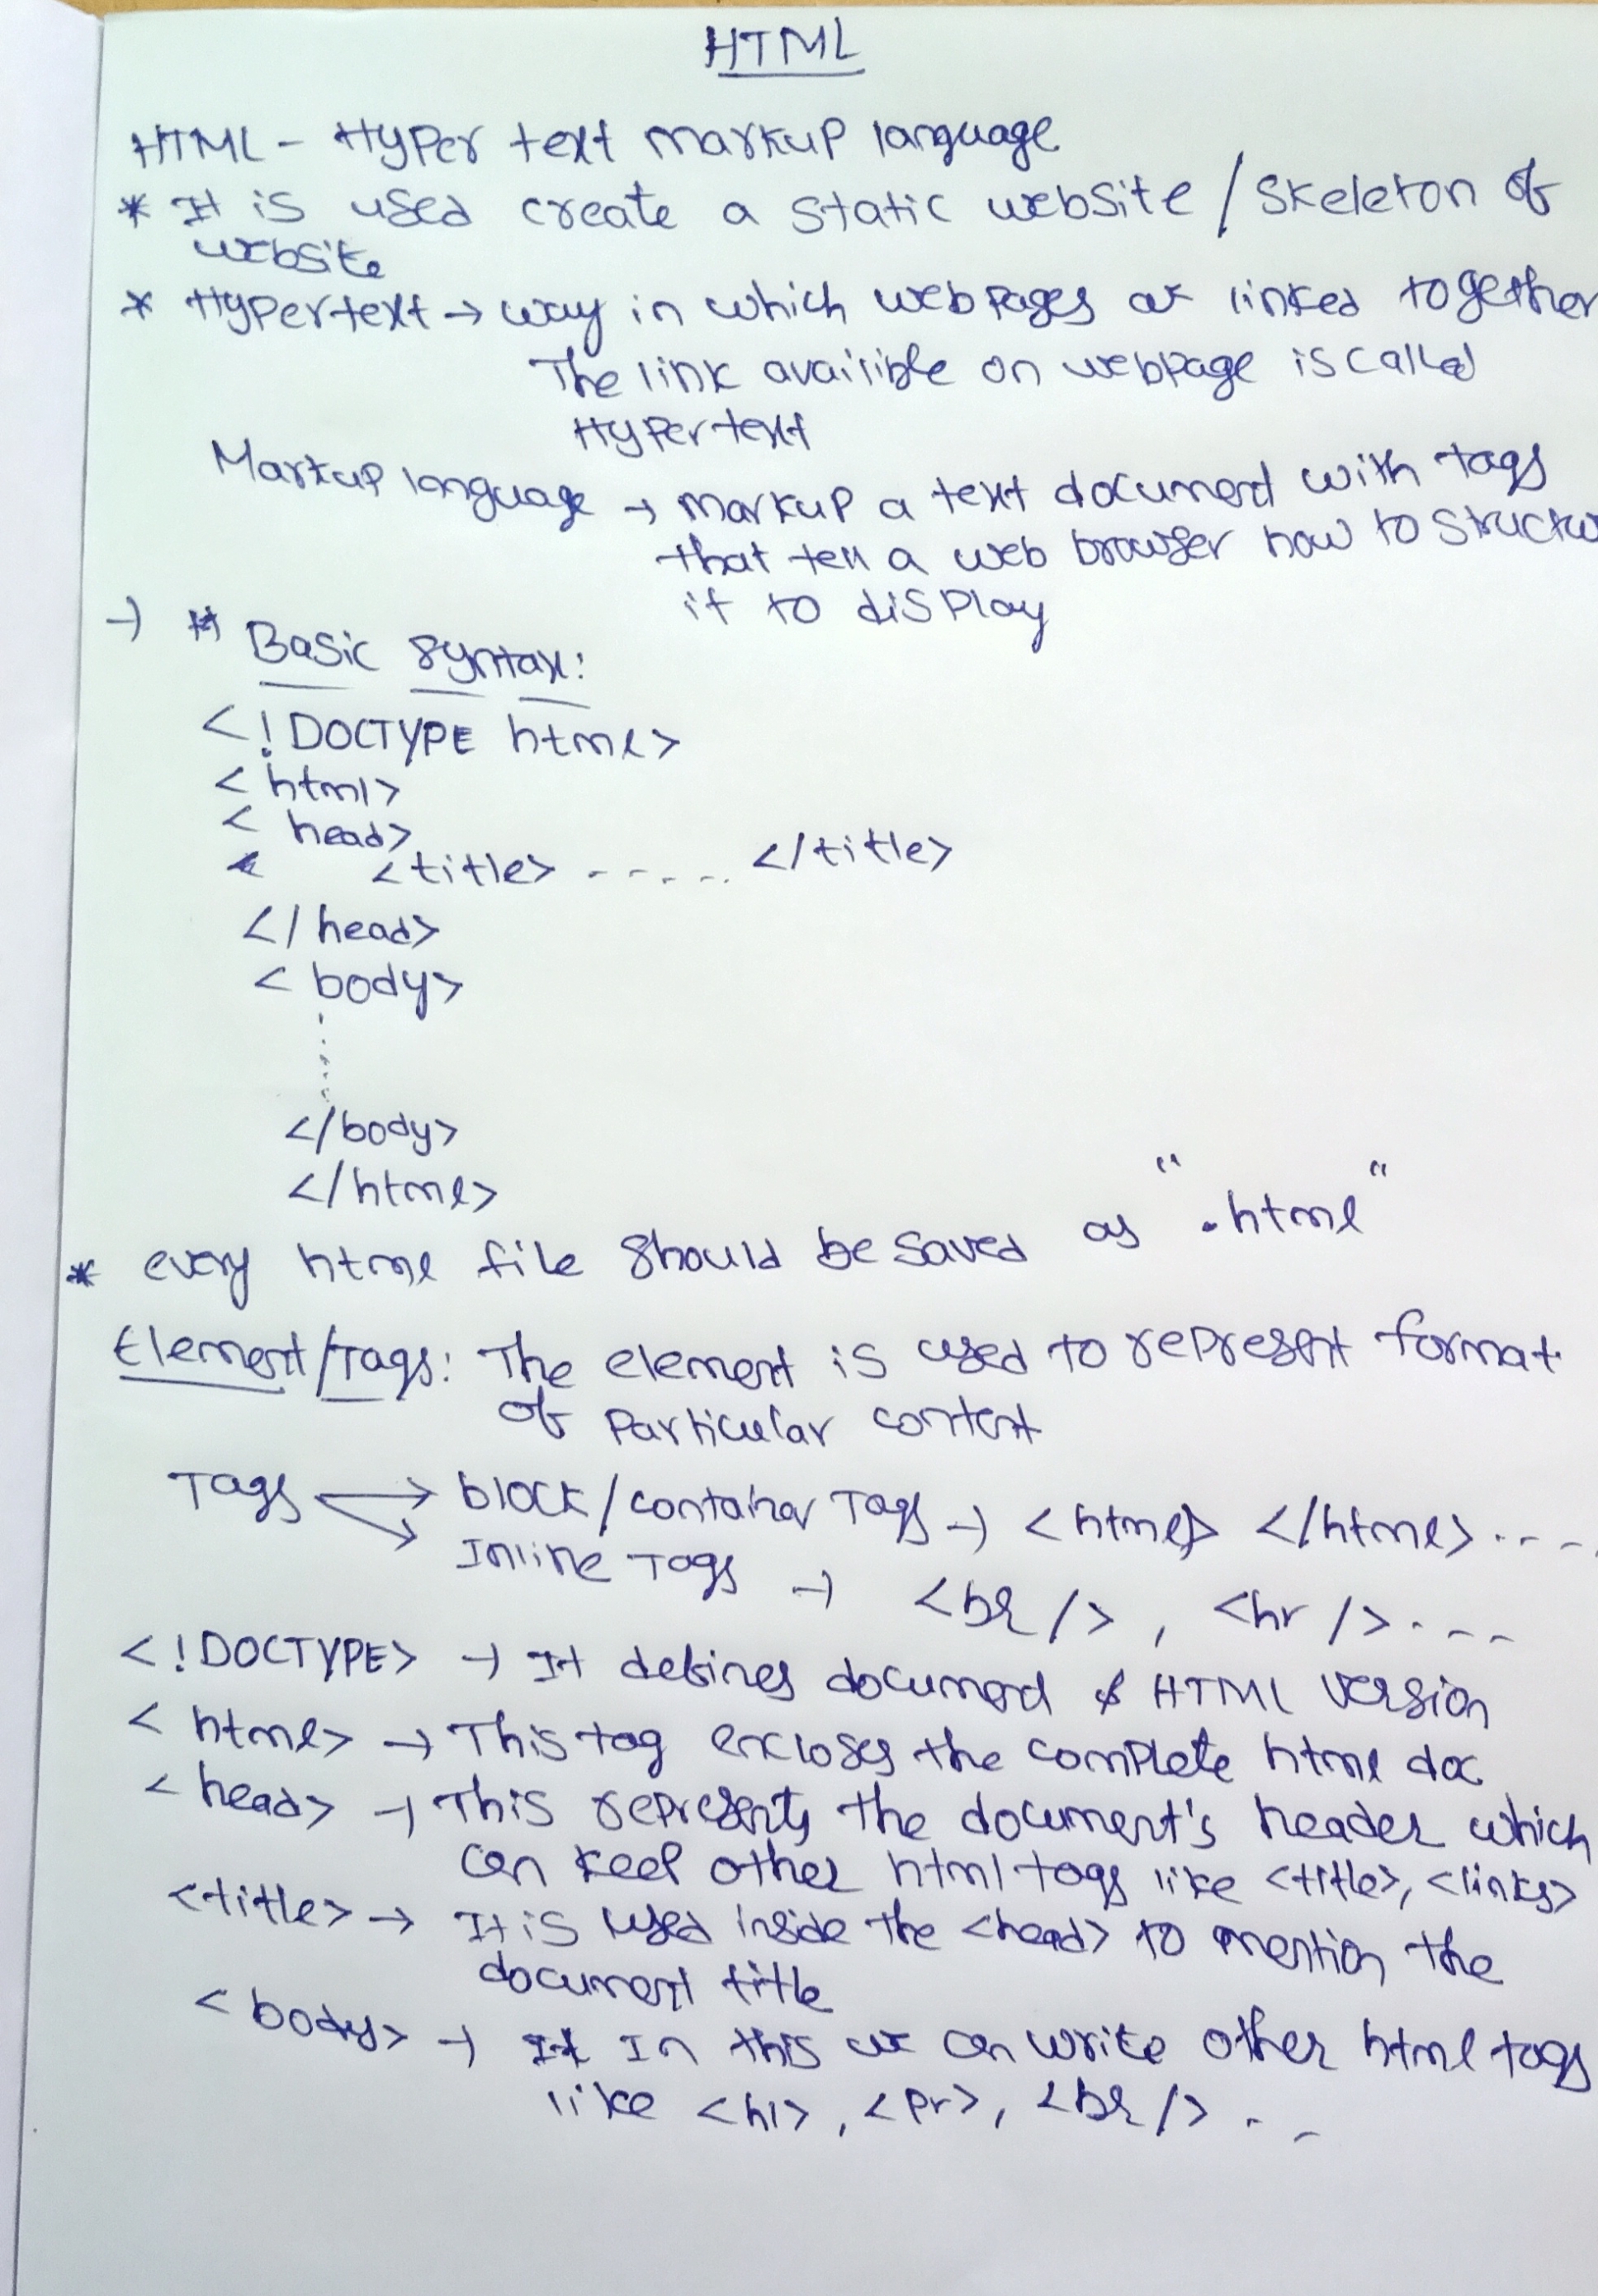 HTML
HTML - Hyper text markup language
* It is used create a static website / skeleton of
website
* Hypertext → way in which webpages are linked together
The link availible on webpage is called
Hypertext
Markup language → markup a text document with tags
that tell a web browser how to structu
it to display
→ ** Basic Syntax:
<!DOCTYPE html>
< html>
< head>
<title> - - - - - </title>
</ head>
< body>
</body>
</html>
* every html file should be saved as ".html"
Element/Tags: The element is used to represent format
of particular content
Tags → block/container Tags → <html> </html> ....
→ Inline Tags → <br />, <hr />....
<!DOCTYPE> → It defines document & HTML version
< html> → This tag encloses the complete html doc
< head> → This represents the document's header which
can keep other html tags like <title>, <links>
<title> → It is used inside the <head> to mention the
document title
< body> → In this we can write other html tags
like <h1>, <pr>, <br /> . -